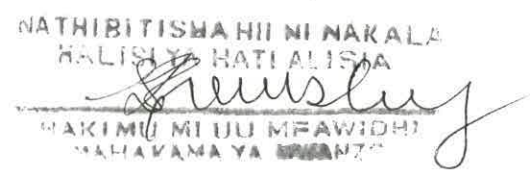 NATHIBITISHA HII NI NAKALA
HALISI YA HATI ALISIA
HAKIMU MI UU MFAWIDHI
MAHAKAMA YA